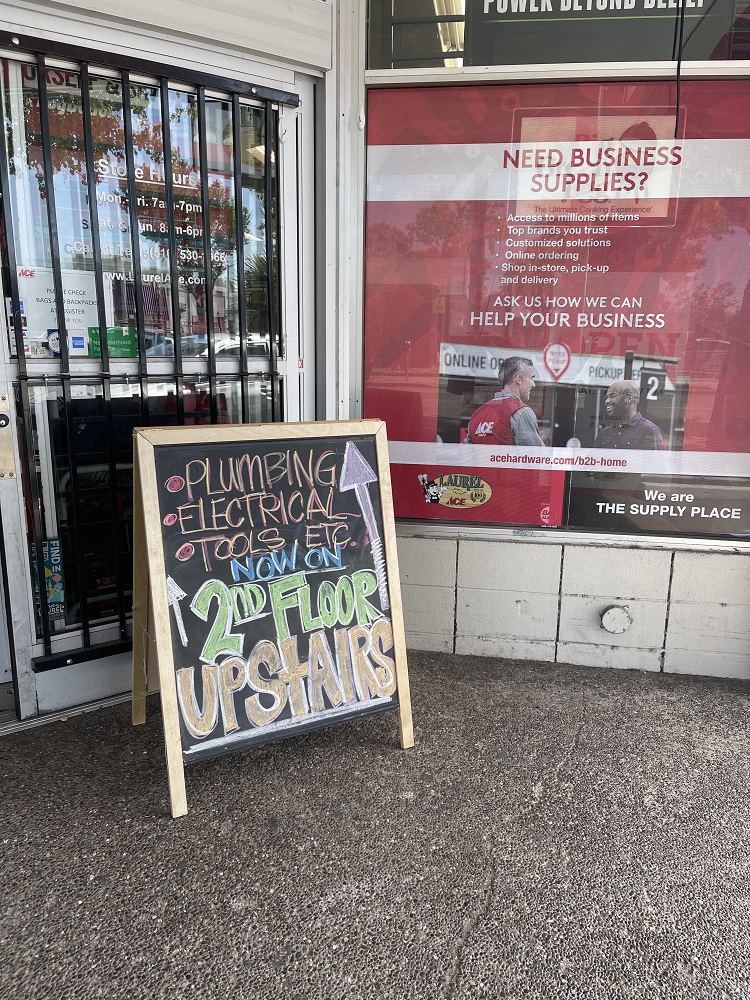 POWER BEYOND BELIEF
Store Hours
Mon.-Fri. 7am-7pm
Sat. & Sun. 8am-6pm
www.LaurelAce.com
ACE
PLEASE CHECK
BAGS AND BACKPACKS
AT REGISTER
THANK YOU
NEED BUSINESS
SUPPLIES?
The Ultimate Cooking Experience
• Access to millions of items
• Top brands you trust
• Customized solutions
• Online ordering
• Shop in-store, pick-up
and delivery
ASK US HOW WE CAN
HELP YOUR BUSINESS
OPEN
ONLINE
PICKUP
2
ACE
acehardware.com/b2b-home
LAUREL
ACE
We are
THE SUPPLY PLACE
• PLUMBING
• ELECTRICAL
• TOOLS ETC.
NOW ON
2ND FLOOR
UPSTAIRS
FIND IN